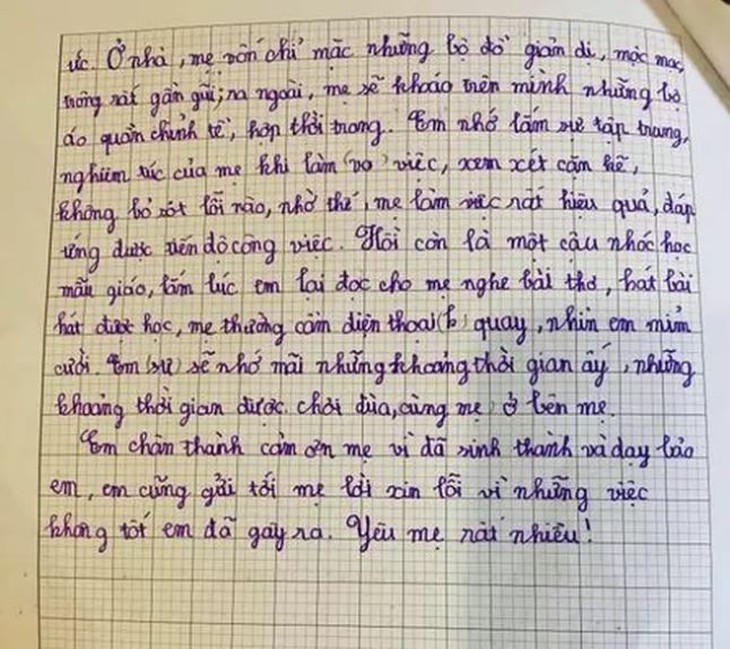 úc. Ở nhà, mẹ vốn chỉ mặc những bộ đồ giản dị, mộc mạc,
trông rất gần gũi; ra ngoài, mẹ sẽ khoác trên mình những bộ
áo quần chỉnh tề, hợp thời trang. Em nhớ lắm sự tập trung,
nghiêm túc của mẹ khi làm (vo) việc, xem xét cặn kẽ,
không bỏ sót lỗi nào, nhờ thế, mẹ làm việc rất hiệu quả, đáp
ứng được tiến độ công việc. Hồi còn là một cậu nhóc học
mẫu giáo, lắm lúc em lại đọc cho mẹ nghe bài thơ, hát bài
hát được học, mẹ thường cầm điện thoại (h) quay, nhìn em mỉm
cười. Em (sự) sẽ nhớ mãi những khoảng thời gian ấy, những
khoảng thời gian được chơi đùa, cùng mẹ, ở bên mẹ.
Em chân thành cảm ơn mẹ vì đã sinh thành và dạy bảo
em, em cũng gửi tới mẹ lời xin lỗi vì những việc
không tốt em đã gây ra. Yêu mẹ rất nhiều!